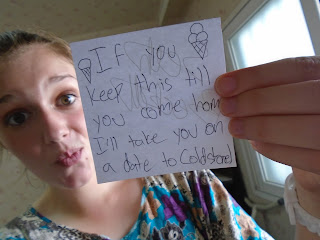 If you
keep this till
you come hom
I'll take you on
a date to Coldstone!